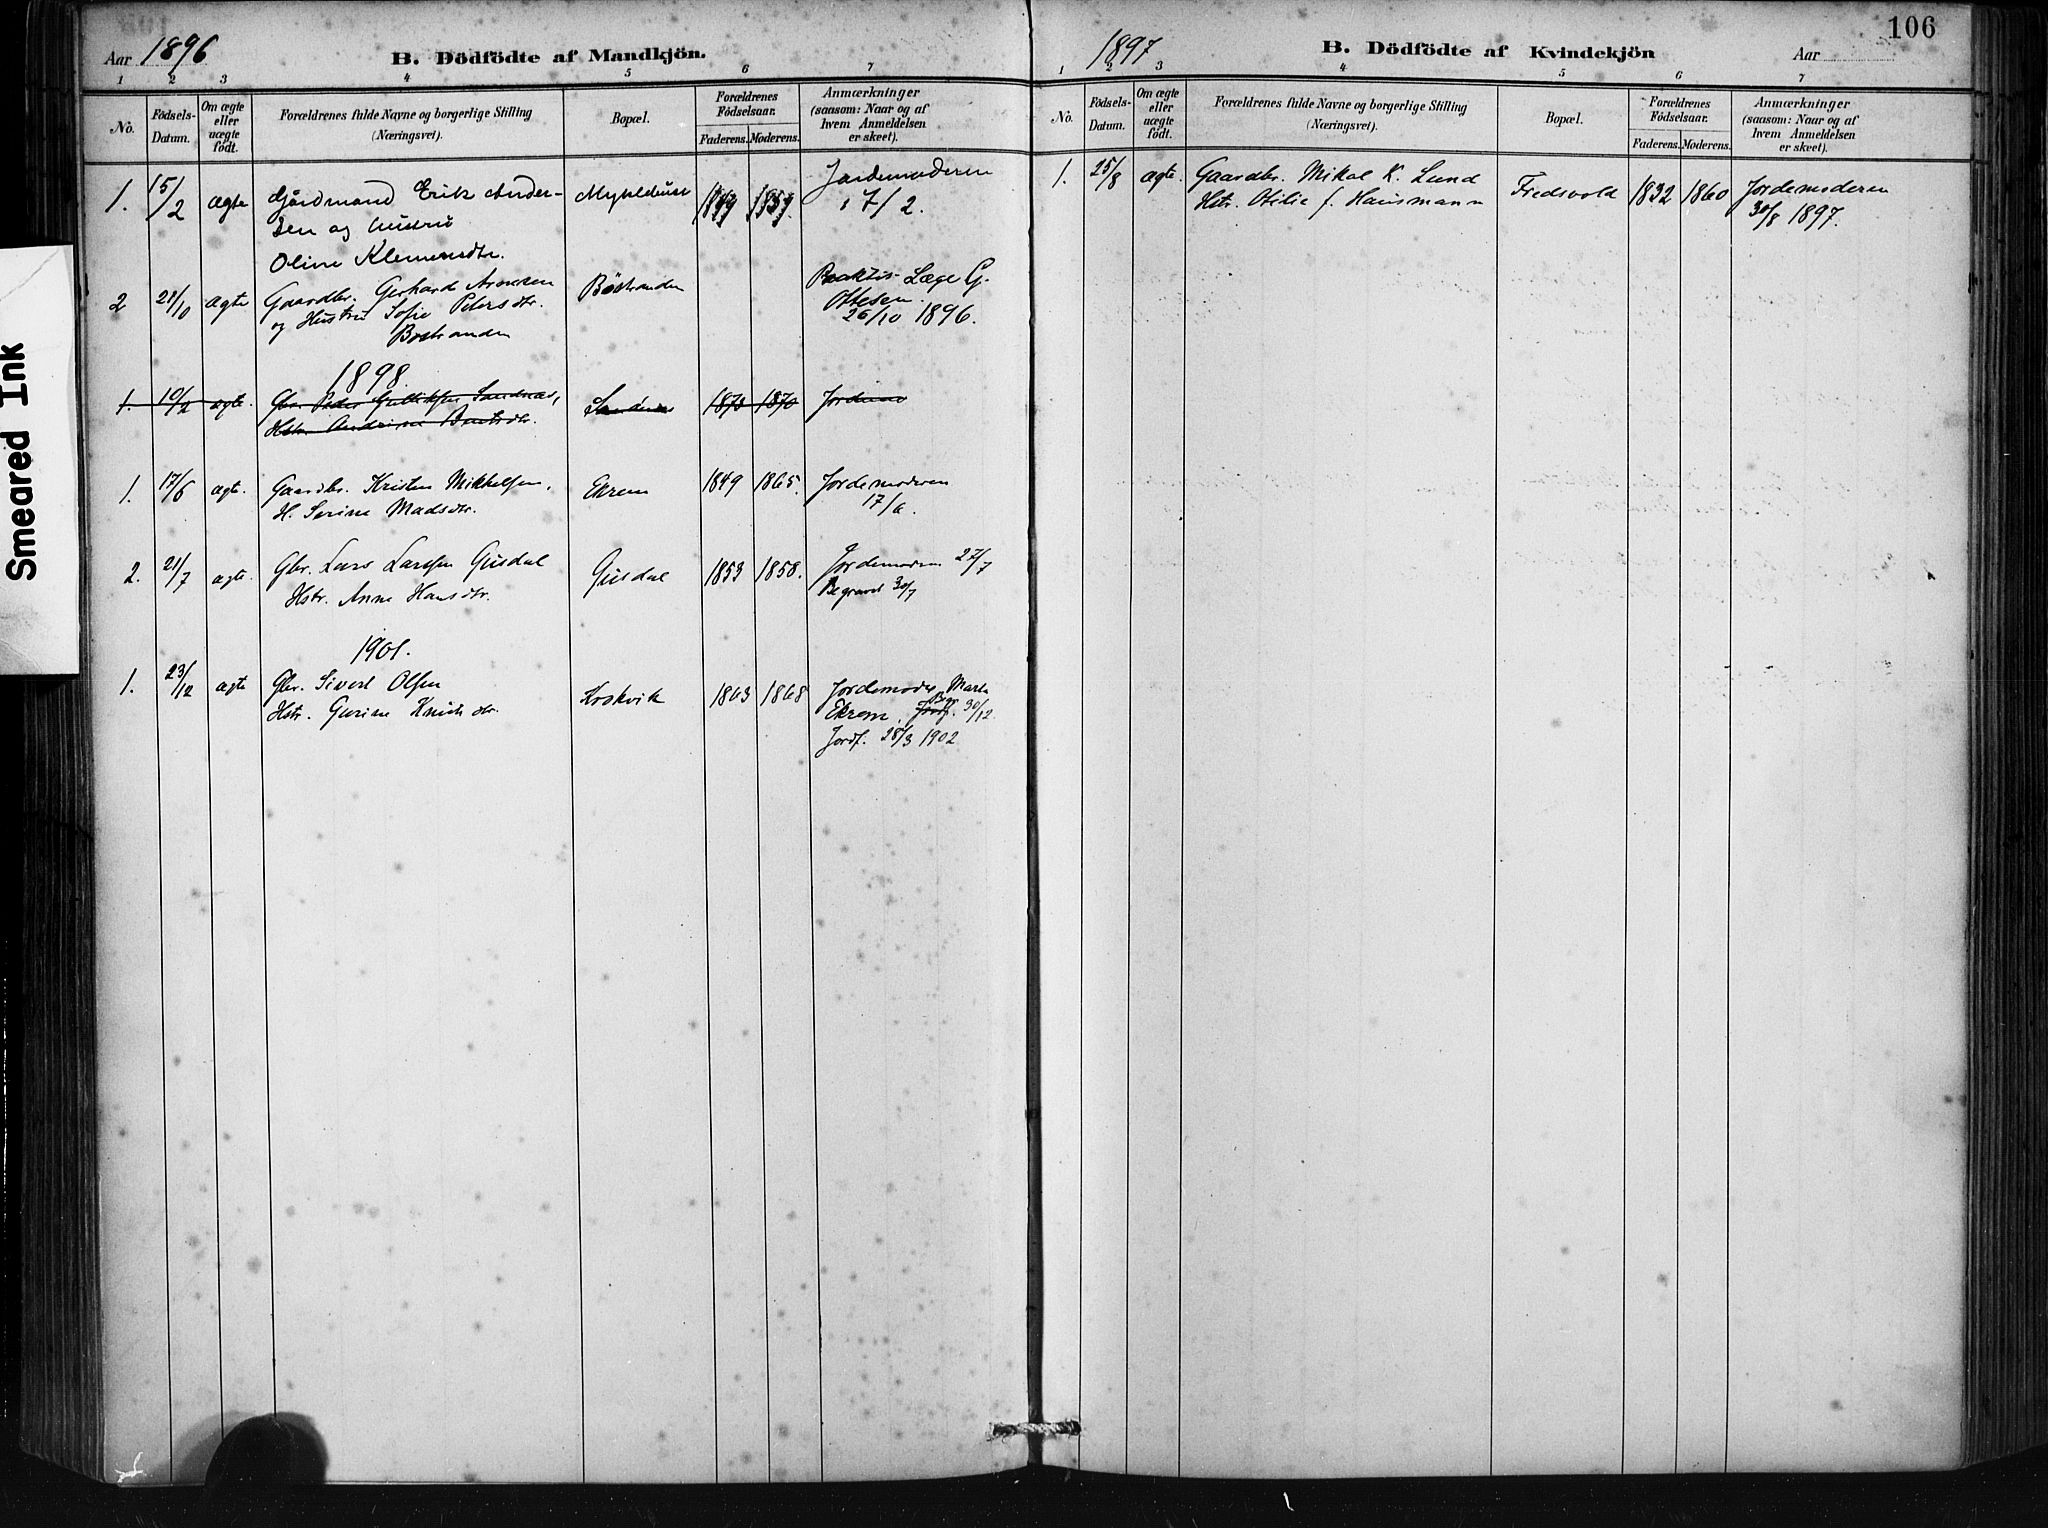 Smeared Ink
Aar 1896
B. Dödfödte af Mandkjön.
1 2 3 4 5 6 7
No.
Födsels-Datum.
Om ægte eller uægte födt.
Forældrenes fulde Navne og borgerlige Stilling (Næringsvei).
Bopæl.
Forældrenes Födselsaar.
Faderens. Moderens.
Anmærkninger (saasom: Naar og af hvem Anmeldelsen er skeet).
1. 15/2 ægte Gårdmand Erik Ander- 1859. Jordemoderen
sen og hustru 17/2.
Oline Klemensdtr.
2 21/10 ægte Gaardbr. Gerhard Böstranden Praktis. Læge G.
og Hustru Sofie Petersdtr. Ottesen
Böstranden 26/10 1896.
1898.
1. 10/2 ægte. Gbr. Peder Sandnæs, Sandnæs 1873 1870 Jordemo
Hstr. Andrine Bentsdtr.
1. 17/6 ægte. Gaardbr. Kristen Mikkelsen, Ekrem 1849 1865. Jordemoderen
H. Serine Madsdtr. 17/6.
2. 21/7 ægte. Gbr. Lars Larsen Gusdal Gusdal 1853 1858. Jordemoren 27/7
Hstr. Anne Hansdtr. Begravet 30/7
1901.
1. 23/12 ægte Gbr. Sivert Olsen Kroksvik 1863 1868 Jordemoder Marta
Hstr. Gurine Knudsdtr. Ekrem, Begr. 30/12.
Jordf. 28/3 1902
106
1897
B. Dödfödte af Kvindekjön
Aar
1 2 3 4 5 6 7
No.
Födsels-Datum.
Om ægte eller uægte födt.
Forældrenes fulde Navne og borgerlige Stilling (Næringsvei).
Bopæl.
Forældrenes Födselsaar.
Faderens. Moderens.
Anmærkninger (saasom: Naar og af hvem Anmeldelsen er skeet).
1. 25/8 ægte. Gaardbr. Mikal K. Lund Fredsvold 1832 1860 Jordemoderen
Hstr. Otilie f. Hausmann 30/8 1897.